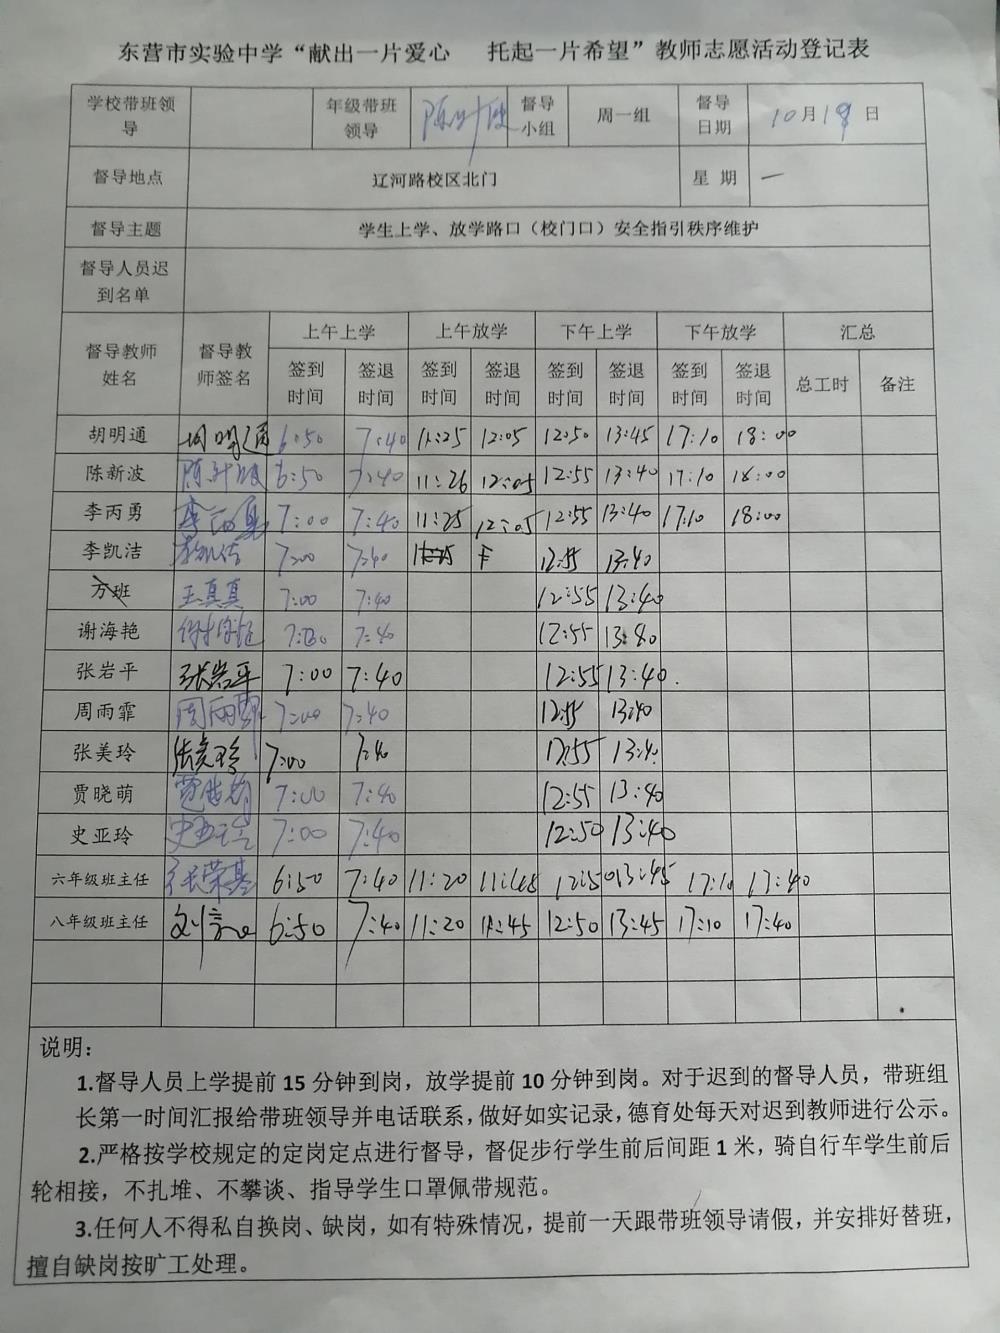 东营市实验中学“献出一片爱心 托起一片希望”教师志愿活动登记表
学校带班领导 年级带班领导 陈新波 督导小组 周一组 督导日期 10月18日
督导地点 辽河路校区北门 星期 一
督导主题 学生上学、放学路口（校门口）安全指引秩序维护
督导人员迟到名单
督导教师姓名 督导教师签名 上午上学 上午放学 下午上学 下午放学 汇总
签到时间 签退时间 签到时间 签退时间 签到时间 签退时间 签到时间 签退时间 总工时 备注
胡明通 胡明通 6:50 7:40 11:25 12:05 12:50 13:45 17:10 18:00
陈新波 陈新波 6:50 7:40 11:26 12:05 12:55 13:40 17:10 18:00
李丙勇 李丙勇 7:00 7:40 11:25 12:05 12:55 13:40 17:10 18:00
李凯洁 李凯洁 7:00 7:40 12:55 13:40
万班 王真真 7:00 7:40 12:55 13:40
谢海艳 谢海艳 7:00 7:40 12:55 13:40
张岩平 张岩平 7:00 7:40 12:55 13:40.
周雨霏 周雨霏 7:00 7:40 12:55 13:40
张美玲 张美玲 7:00 7:40 12:55 13:40
贾晓萌 贾晓萌 7:00 7:40 12:55 13:40
史亚玲 史亚玲 7:00 7:40 12:50 13:40
六年级班主任 张荣基 6:50 7:40 11:20 11:45 12:50 13:45 17:10 17:40
八年级班主任 6:50 7:40 11:20 11:45 12:50 13:45 17:10 17:40
说明：
1.督导人员上学提前 15 分钟到岗，放学提前 10 分钟到岗。对于迟到的督导人员，带班组
长第一时间汇报给带班领导并电话联系，做好如实记录，德育处每天对迟到教师进行公示。
2.严格按学校规定的定岗定点进行督导，督促步行学生前后间距 1 米，骑自行车学生前后
轮相接，不扎堆、不攀谈、指导学生口罩佩带规范。
3.任何人不得私自换岗、缺岗，如有特殊情况，提前一天跟带班领导请假，并安排好替班，
擅自缺岗按旷工处理。